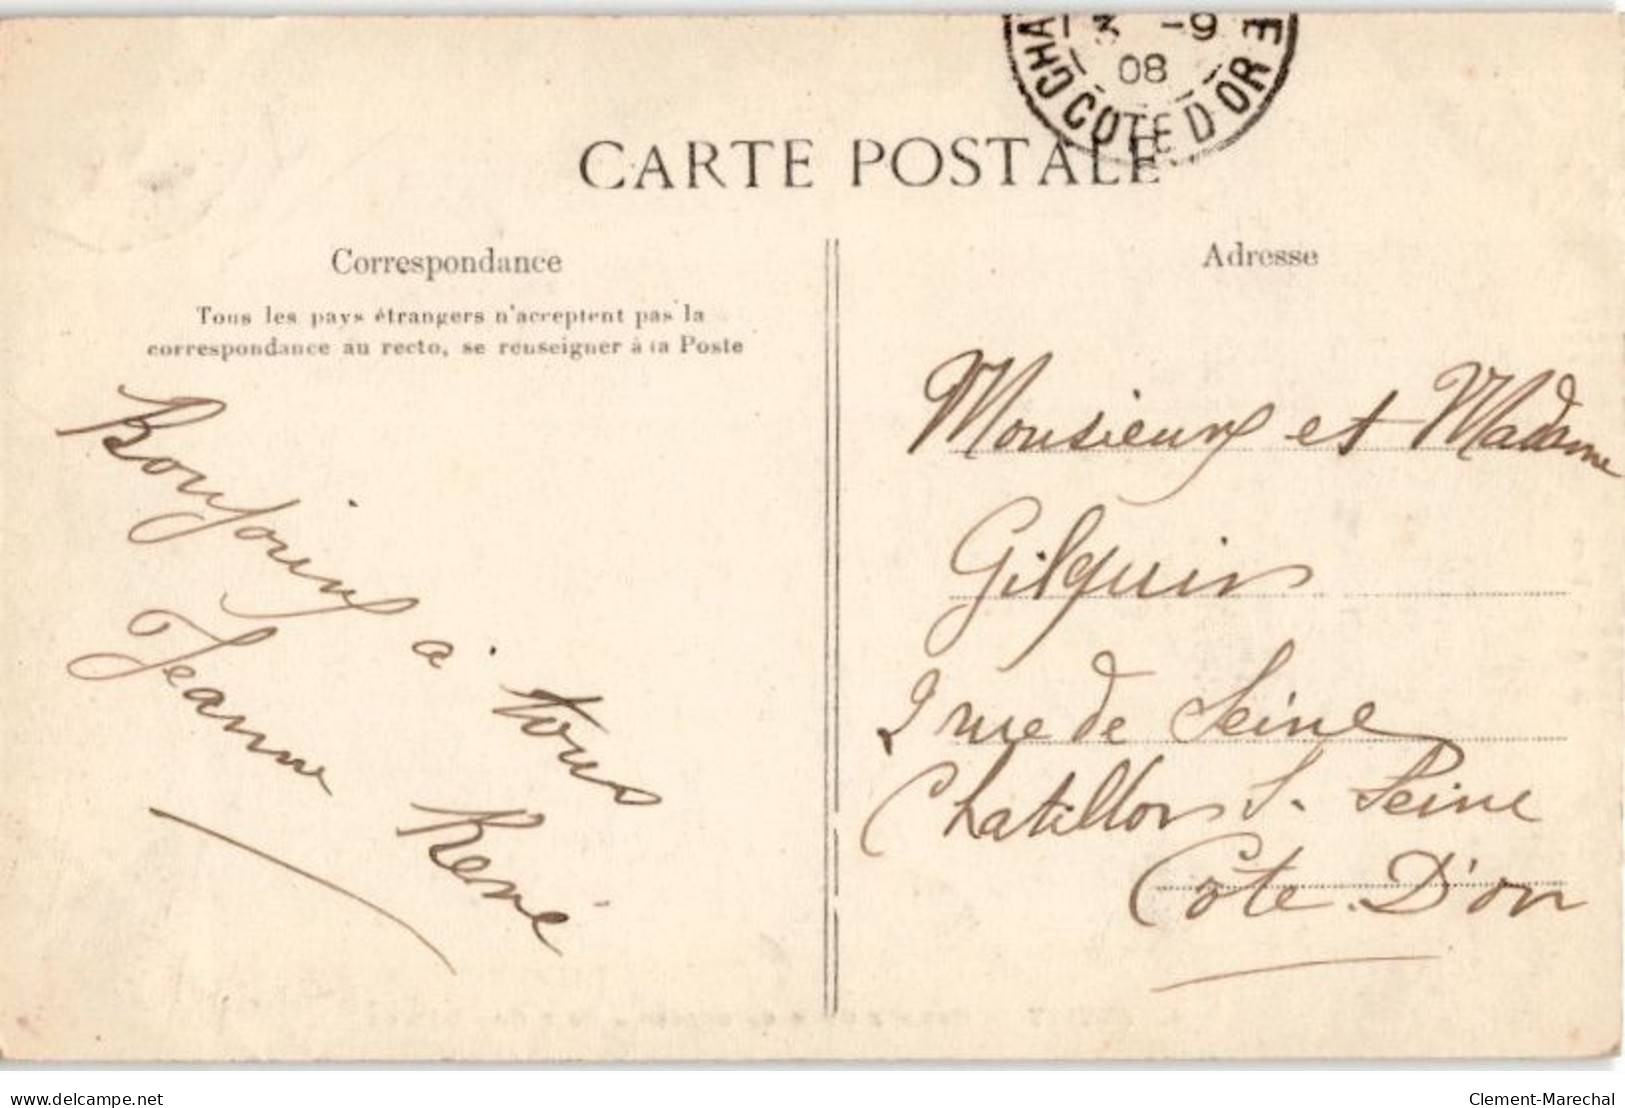 CHA
3 -9
E
08
COTE D'OR
CARTE POSTALE
Correspondance
Adresse
Tous les pays étrangers n'acceptent pas la
correspondance au recto, se renseigner à la Poste
Bonjour à tous
Jeanne René
Monsieur et Madame
Gilquin
2 rue de Seine
Chatillon S. Seine
Côte. D'or
www.delcampe.net
Clement-Marechal